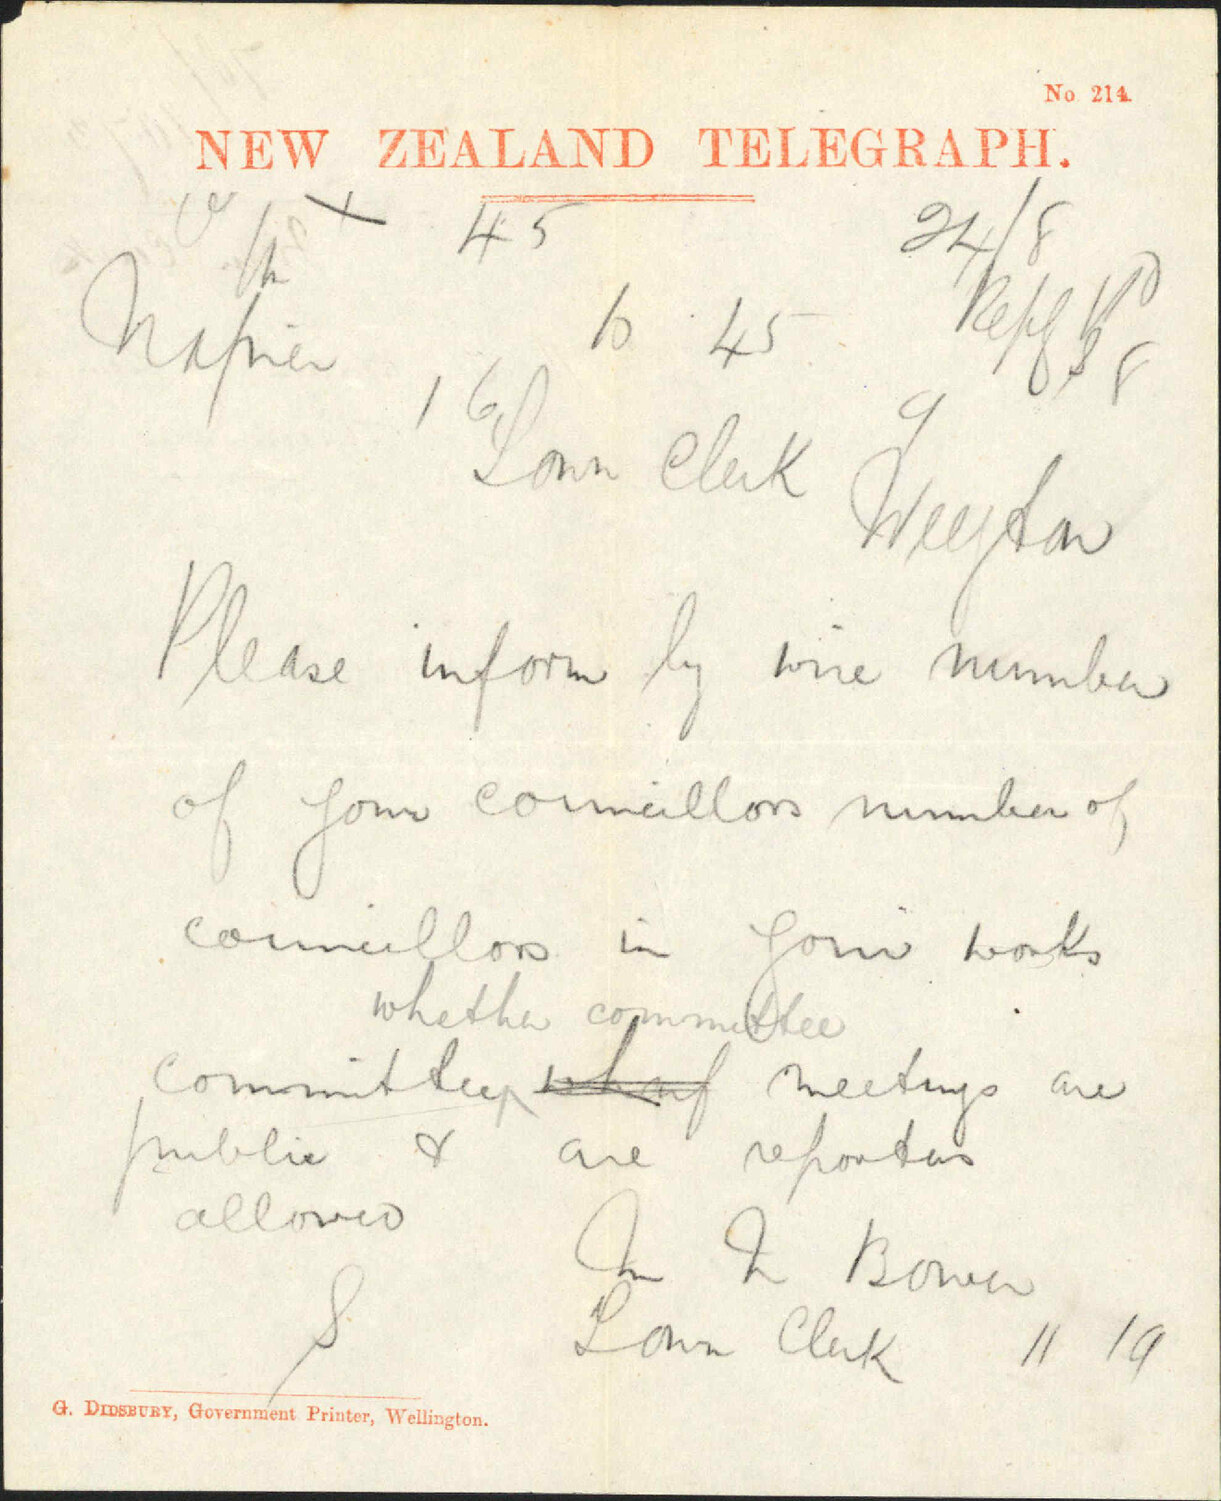 No 214.
NEW ZEALAND TELEGRAPH.
45 24/8
Napier 10 45 Reply Pd
16 8
Town Clerk
Wellgton
Please inform by wire number
of your councillors number of
councillors in your works
whether committee
committee meetings are
public & are reporters
allowed
M N Bower
Town Clerk 11 19
G. DIDSBURY, Government Printer, Wellington.